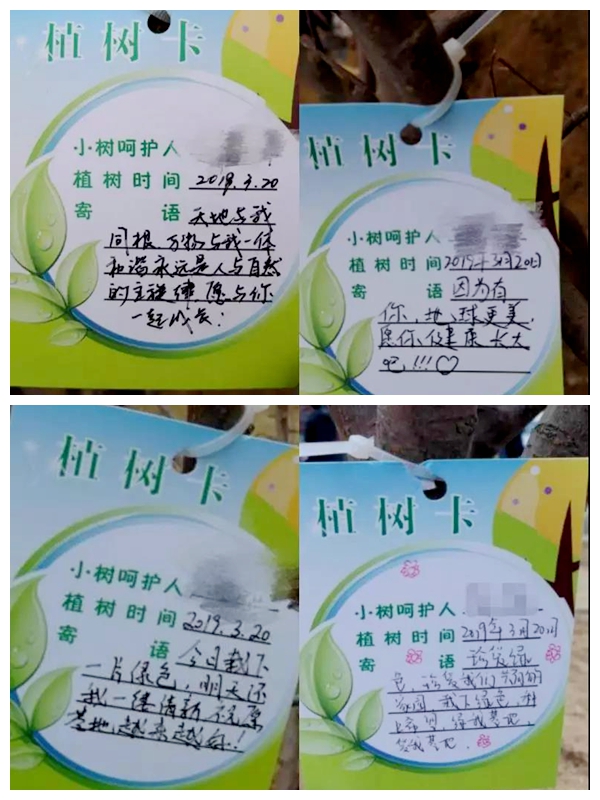 植树卡
小树呵护人
植树时间 2019.3.20
寄 语 天地与我
同根 万物与我一体
和谐永远是人与自然
的主旋律 愿与你
一起成长!
植树卡
小树呵护人
植树时间 2019年3月20日
寄 语 因为有
你,地球更美,
愿你健康长大
吧!!!♡
植树卡
小树呵护人
植树时间 2019.3.20
寄 语 今日栽下
一片绿色,明天还
我一缕清新 祝愿
基地越来越好!
植树卡
小树呵护人
植树时间 2019年3月20日
寄 语 珍爱绿
色,珍爱我们共同的
家园,栽下绿色,种
上希望,绿我基地,
我基地.